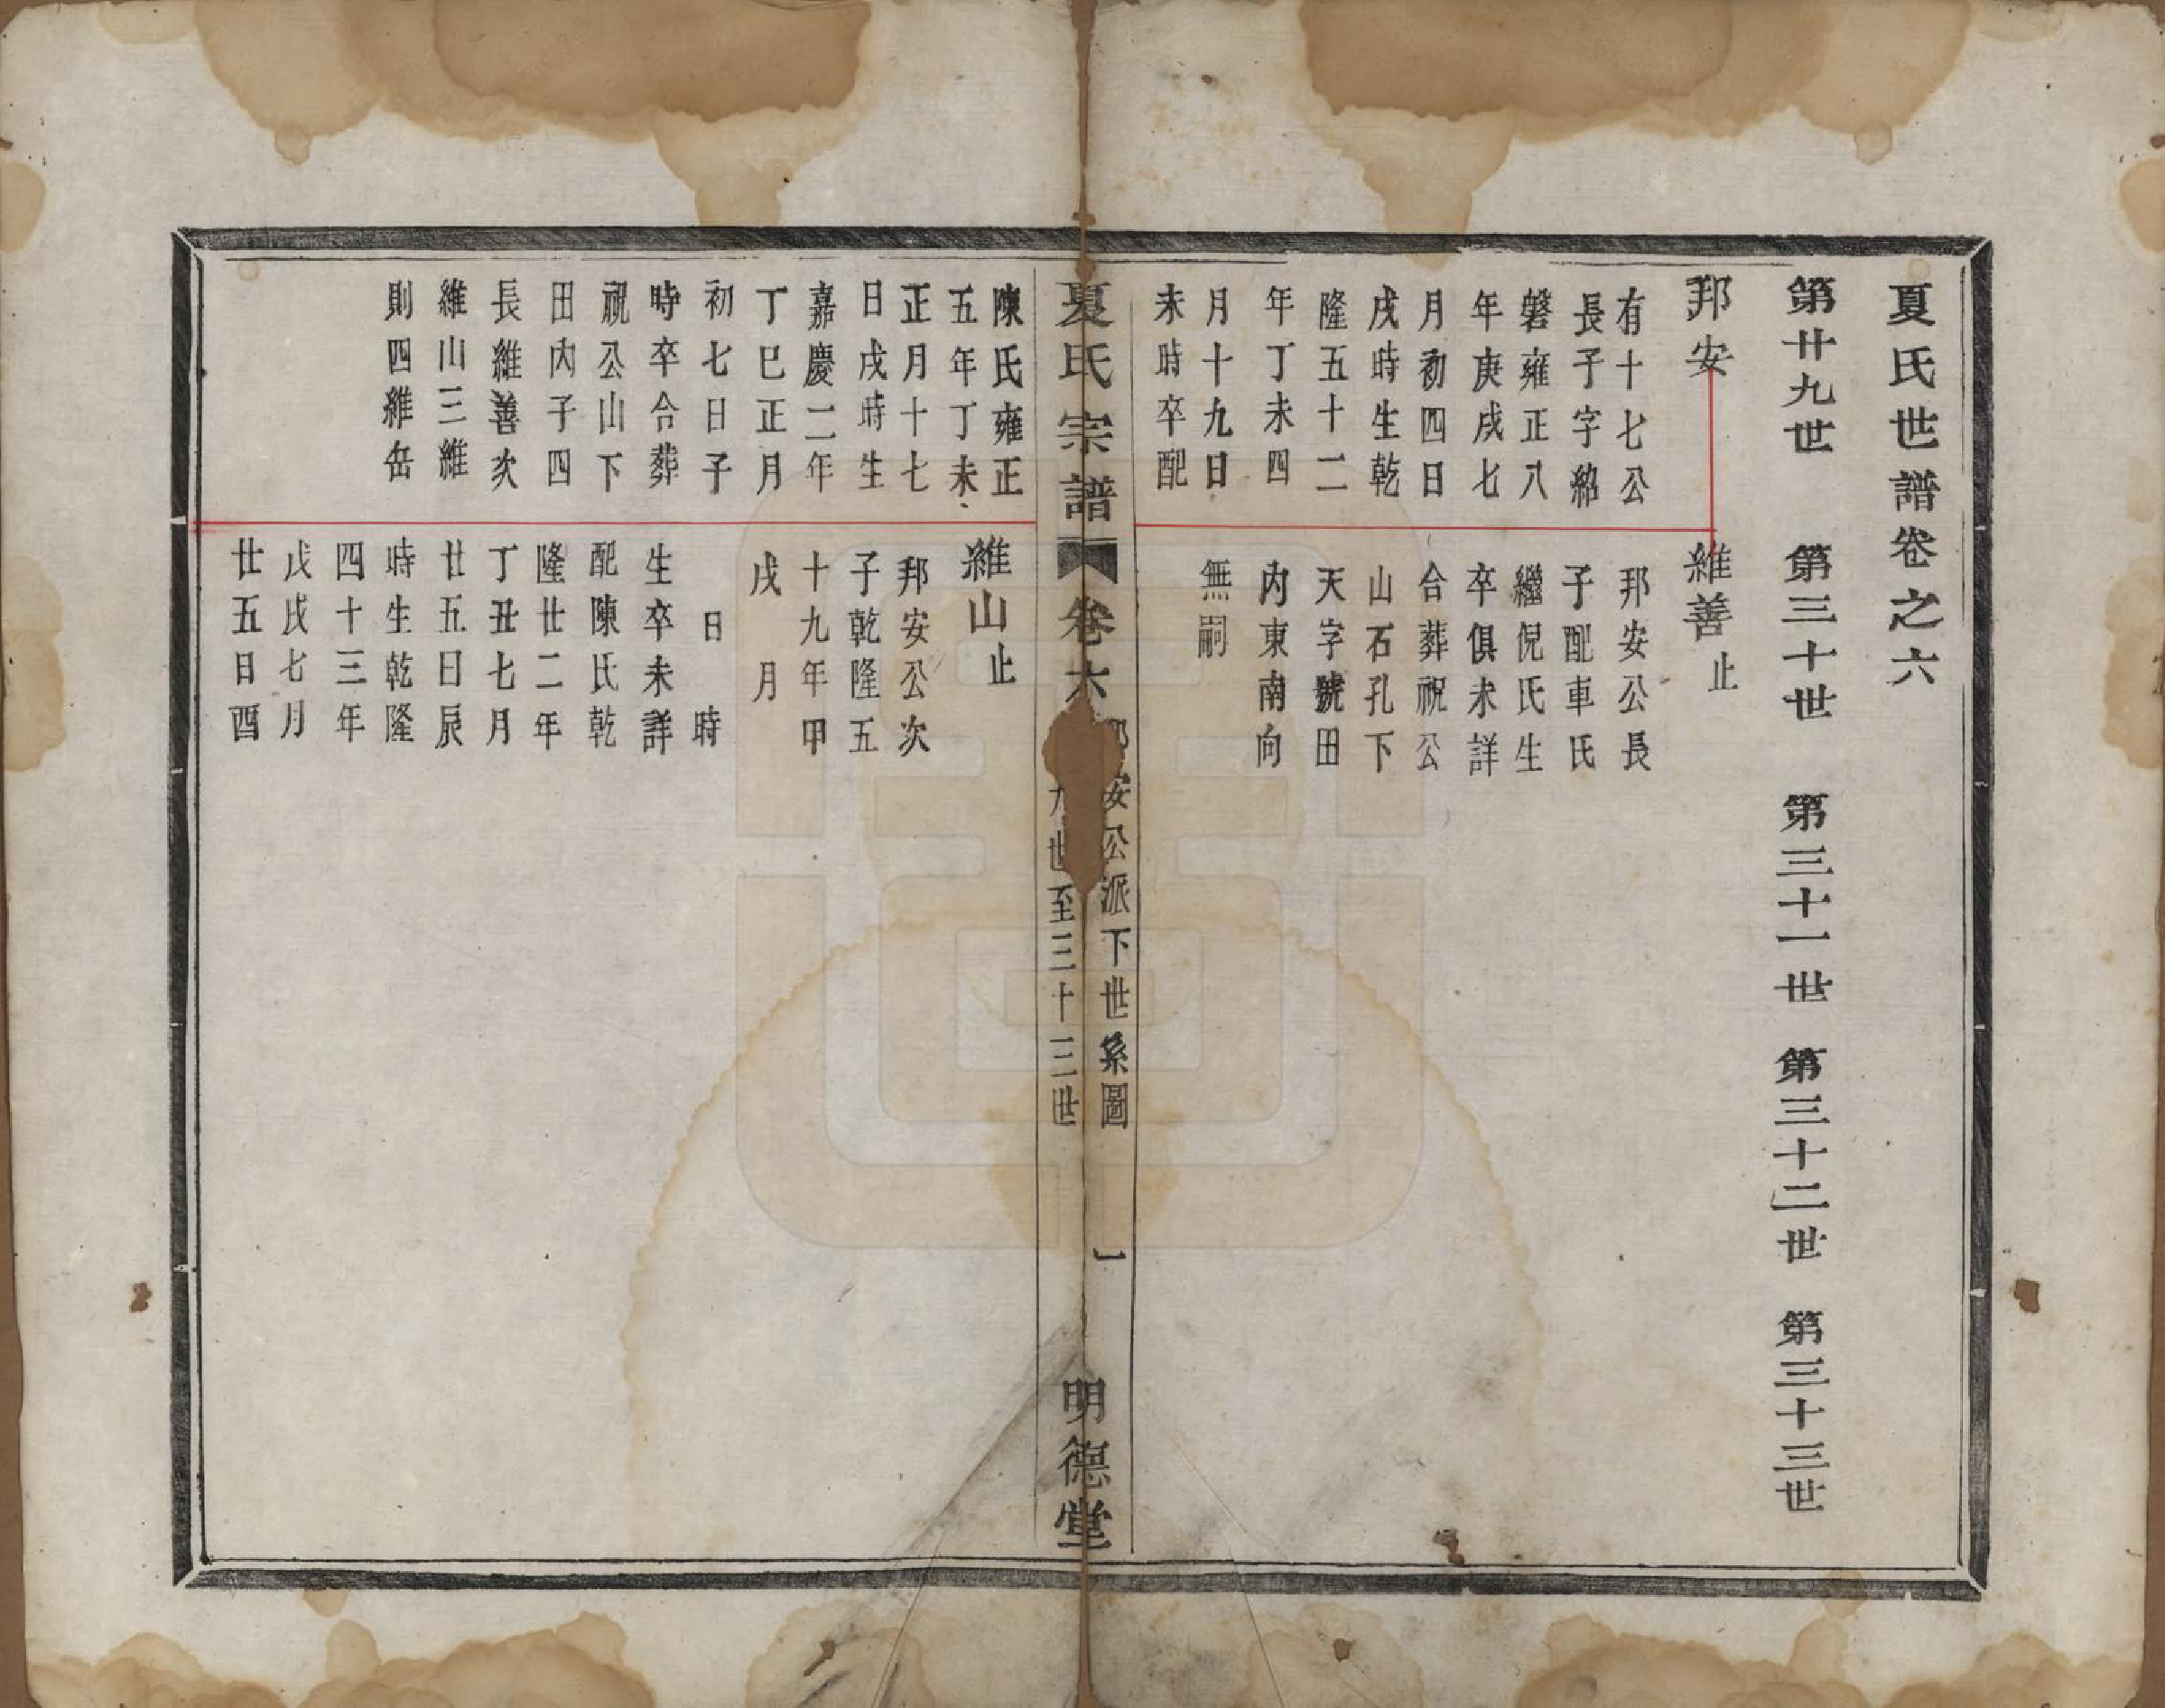 夏氏世譜卷之六
第廿九世　第三十世　第三十一世　第三十二世　第三十三世
邦安
有十七公
長子字紹
磐雍正八
年庚戌七
月初四日
戌時生乾
隆五十二
年丁未四
月十九日
未時卒配
維善止
邦安公長
子配車氏
繼倪氏生
卒俱未詳
合葬祝公
山石孔下
天字號田
內東南向
無嗣
夏氏宗譜　卷六
安公派下世系圖
九世至三十三世
一
明德堂
陳氏雍正
五年丁未
正月十七
日戌時生
嘉慶二年
丁巳正月
初七日子
時卒合葬
祝公山下
田內子四
長維善次
維山三維
則四維岳
維山止
邦安公次
子乾隆五
十九年甲
戌　月
日　時
生卒未詳
配陳氏乾
隆廿二年
丁丑七月
廿五日辰
時生乾隆
四十三年
戊戌七月
廿五日酉